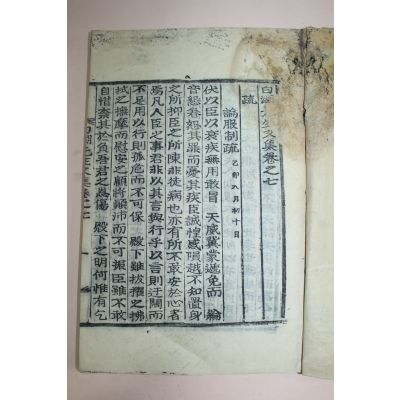 白湖先生文集卷之七
疏
論服制疏 乙卯八月初十日
伏以臣以衰疾無用敢冒 天威冀蒙遞免而 綸
音繾綣恕其罪而憂其疾臣誠惶感隕越不知置身
之所抑臣之所陳非徒病也亦有所不敢安於心者
焉凡人臣之事君非以其言與行乎以言則迂闊而
不足用以行則孤危而不可保 殿下雖拔擢之拂
拭之撫摩而慰安之顧將顚沛而不可振臣雖不敢
自惜柰其於負吾君之爲傷 殿下之明何惟有乞